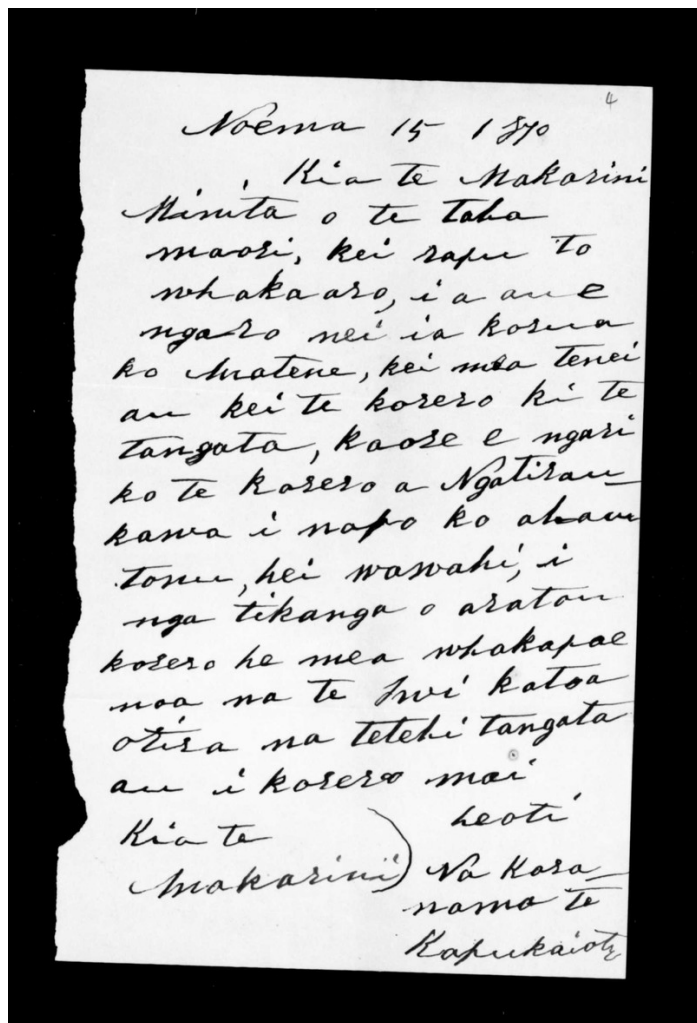 4
Noema 15 1870
Kia te Makarini
Minita o te taha
maori, kei rapu to
whakaaro, i a au e
ngaro nei ia korua
ko Matene, kei mea tenei
au kei te korero ki te
tangata, kaore e ngari
ko te korero a Ngatirau-
kawa i napo ko ahau
tonu, hei wawahi, i
nga tikanga o aratou
korero he mea whakapae
noa na te Iwi katoa
otira na tetehi tangata
au i korero mai
heoti
Kia te
Makarini
Na Kara-
nama te
Kapukaiotu